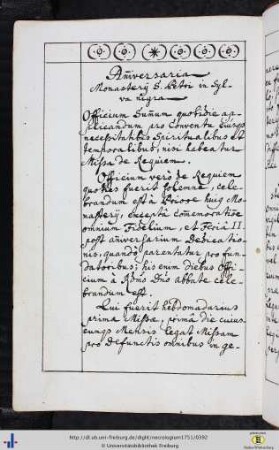 Anniversaria
Monasterij S. Petri in Syl-
va nigra
Officium Divinum quotidie ap-
plicandum pro Conventu ejusq
necessitatibus Spiritualibus et
temporalibus, nisi habeatur
Missa de Requiem.
Officium verò de Requiem
quoties fuerit solemne, cele-
brandum est à Priore hujus Mo-
nasterij, exceptâ comemoratione
omnium Fidelium, et Feriâ II
post aniversarium Dedicatio-
nis, quando parentatur pro fun-
datoribus; his enim diebus Offi-
cium à Rdmo Dno abbate cele-
brandum est.
Qui fuerit hebdomadarius
primæ Missæ, primâ die cuius-
cunq Mensis legat Missam
pro Defunctis omnibus in ge-
http://dl.ub.uni-freiburg.de/diglit/necrologium1751/0392
© Universitätsbibliothek Freiburg